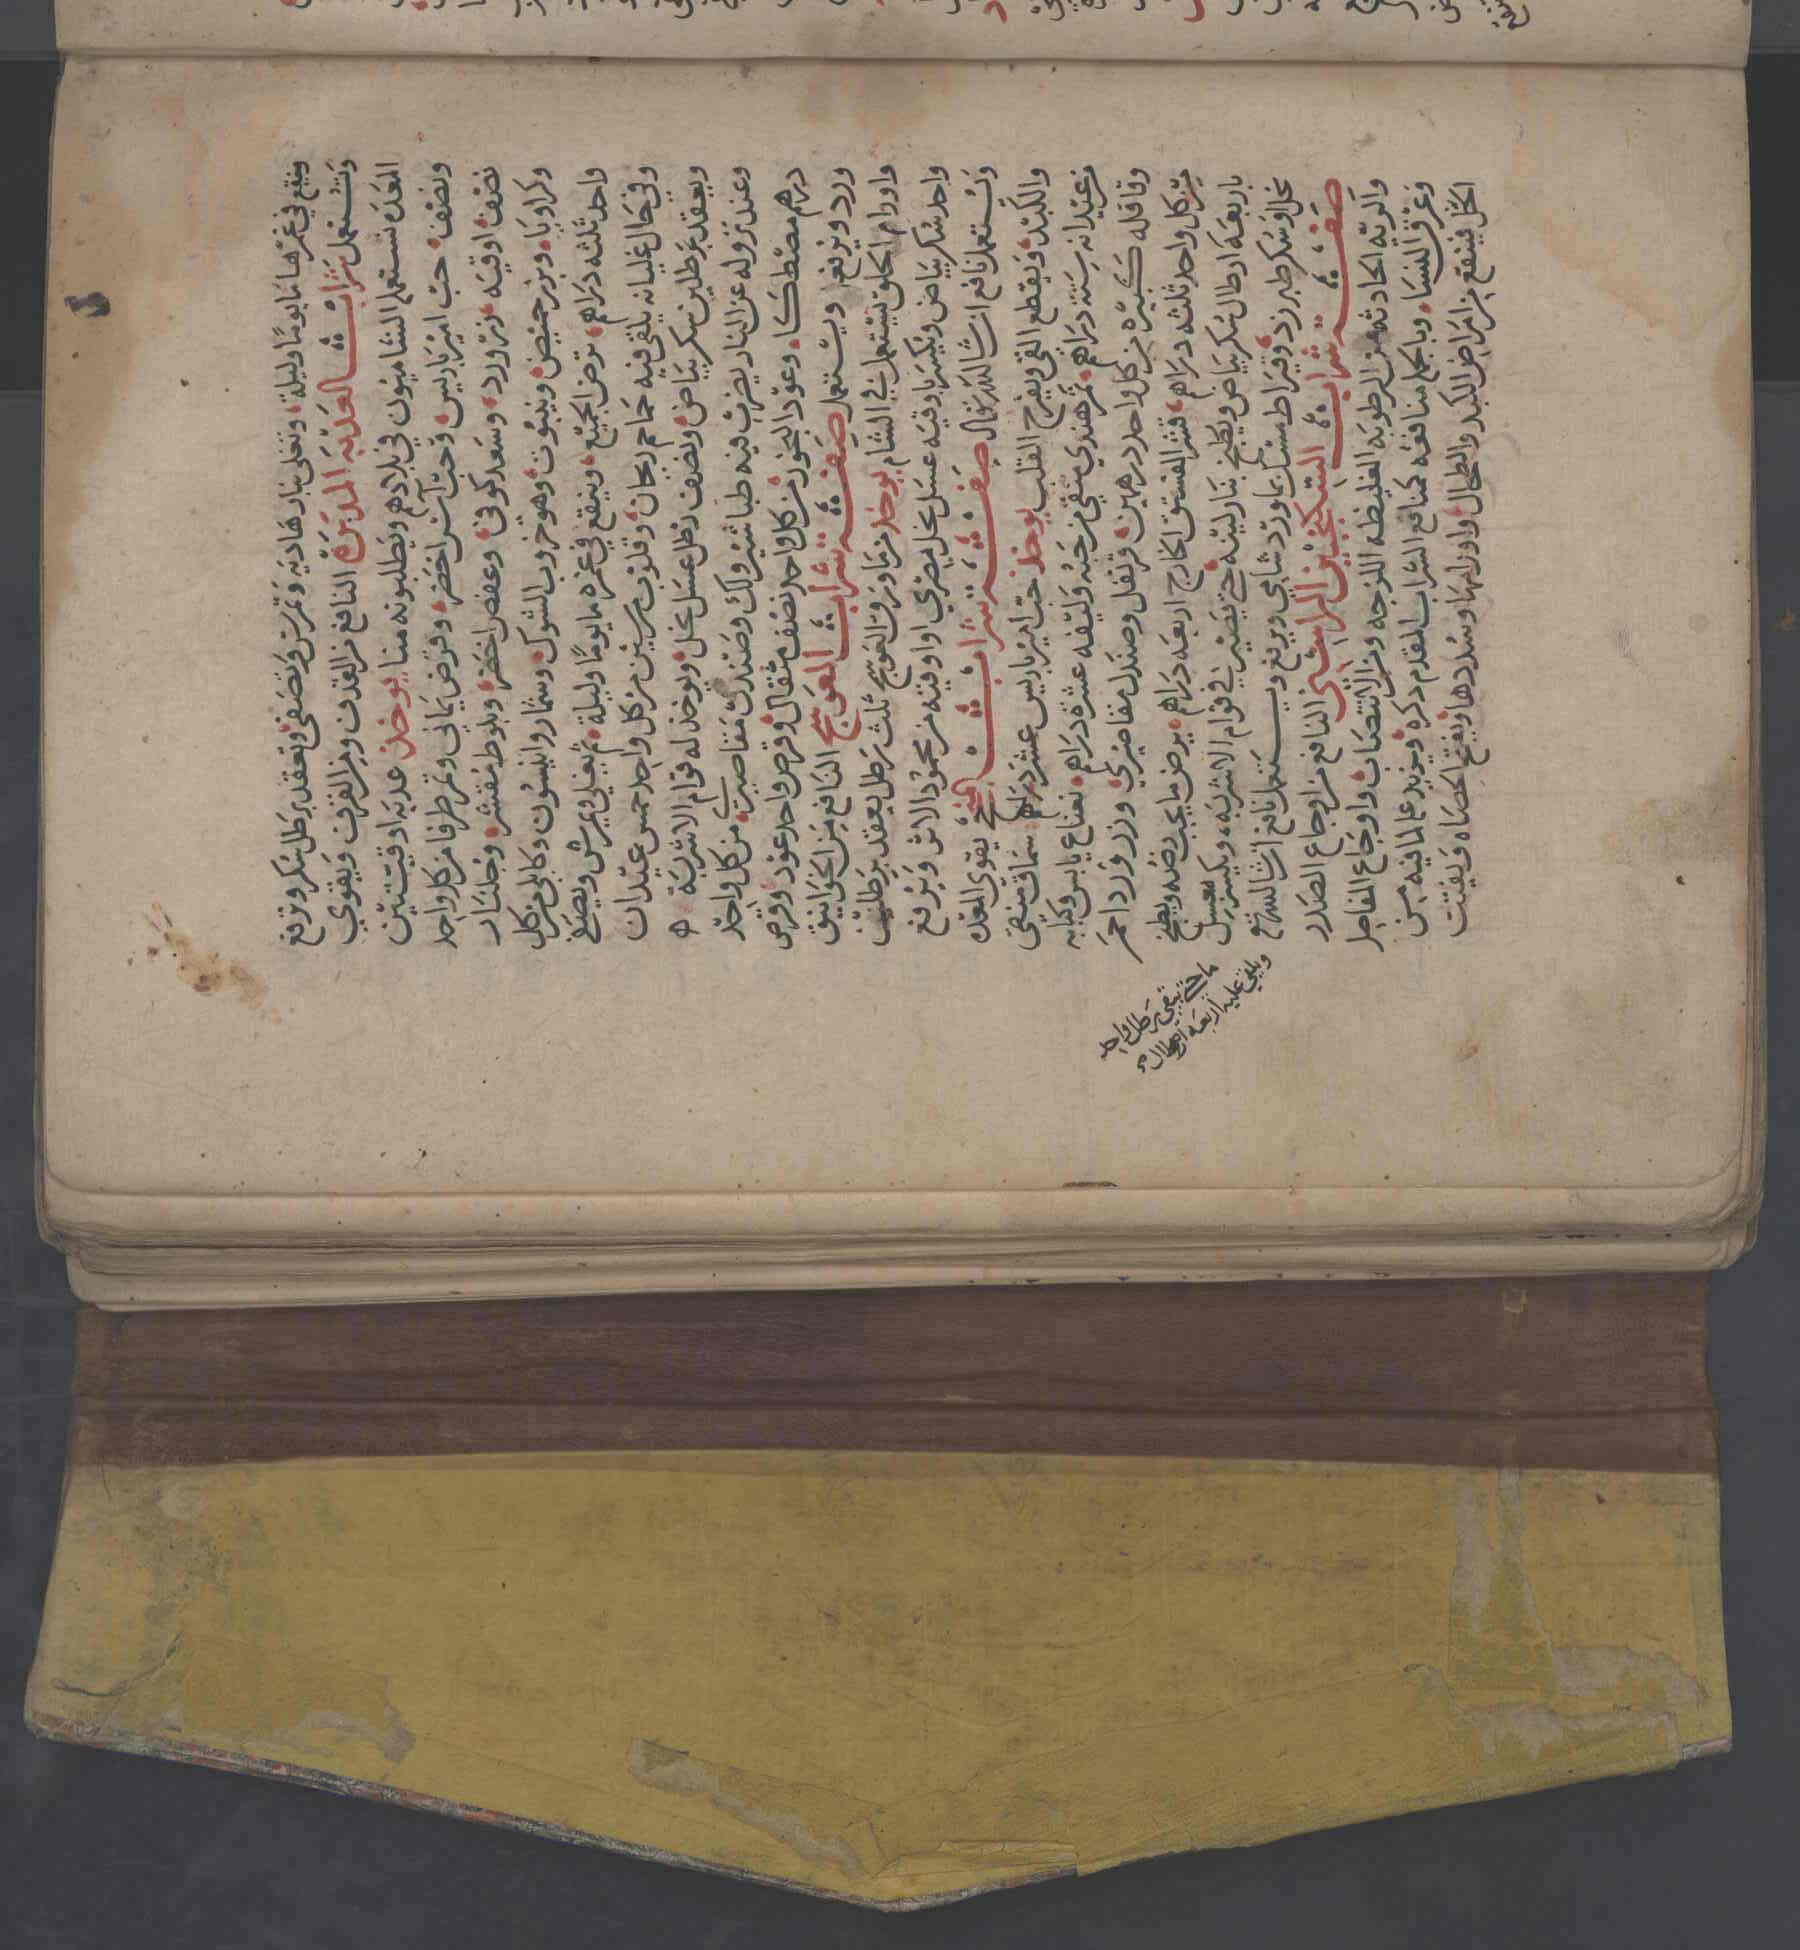 وينقع في غمرها ما يومًا وليلة وتغلى بنار هادية وتمرس وتصفى وتعقد برطل سكر وترفع
وتستعمل شراب العدبة المدبرة النافع من القذف ومن القرف ويقوي
المعدة تستعمله الشاميون في بلادهم ويطلبونه منا يوخذ عدبة اوقيتين
ونصف حب امبرباريس وحب آس اخضر وقرض يماني وتمر طرفا من كل واحد
نصف اوقية زر ورد وسعد كوفي وعفص اخضر وبلوط مقشر وجلنار
وكراويا وبزر حميض وينبوت وهو خروب الشوك وشمار وانيسون وكابلي من كل
واحد ثلثه دراهم ترض الجميع وينقع في غمره ما يومًا وليلة ثم يغلي ويمرس ويصفى
وفي حال غليانه يلقى فيه حماحم ريحان وقلوب مرسين من كل واحد خمس عيدان
ويعقد برطلين سكر بياض ونصف رطل عسل نحل ويوخذ له قوام الاشربة ه
وعند نزوله عن النار يضرب فيه طباشير ولك وصندل مقاصيري من كل واحد
درهم مصطكا وعود البخور من كل واحد نصف مثقال وقرص واحد عود وقرص
ورد ويرفع ويستعمل صفة شراب العوسج النافع من الخوانيق
واورام الحلق تستعمل في الشام يوخذ من ما ورق العوسج ثلث رطل يعقد برطلين
واحد سكر بياض ويكسر باوقية عسل نحل مصري او اوقية من محمود الاش ويرفع
وتستعمل نافع ان شا الله تعالى صفة شراب الفنج يقوي المعده
والكبد ويقطع القي ويفرح القلب يوخذ حب امبرباريس عشر دراهم سماق منقى
من عيدانه ستة دراهم تمرهندي منقى من حبه وليفه عشرة دراهم نعناع يابس وكبابه
وقاقله كبيره من كل واحد درهمين قرنفل وصندل مقاصيري وزر ورد احمر
من كل واحد ثلثه دراهم قشر الفستق الخارج اربعه دراهم يرض ما يجب رضه ويطبخ
باربعة ارطال سكر بياض ويطبخ بنار لينه حتى يصير في قوام الاشربه ويكسر بعسل
نحل او سكر طبرزد وقيراط مسك بماورد شامي ويرفع ويستعمل نافع ان شا الله تع
صفة شراب السكنجبين الراسني النافع من اوجاع الصدر
والريه الحادثه من الرطوبه الغليظه اللزجه ومن الانتصاب واوجاع المفاصل
وعرق النسا وبالجمله منافعه كمنافع الشراب المقدم ذكره ويزيد على ما فيه من
الخل فينفع من امراض الكبد والطحال واورامها وسددها ويفتح الحصاه ويفتت
ويلقى عليه اربعه ارطال
ما الى ان يبقى رطل واحد